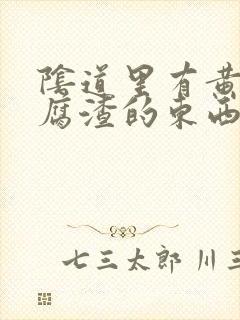 陰道里有黄
腐渣的东西
七三太郎 川三